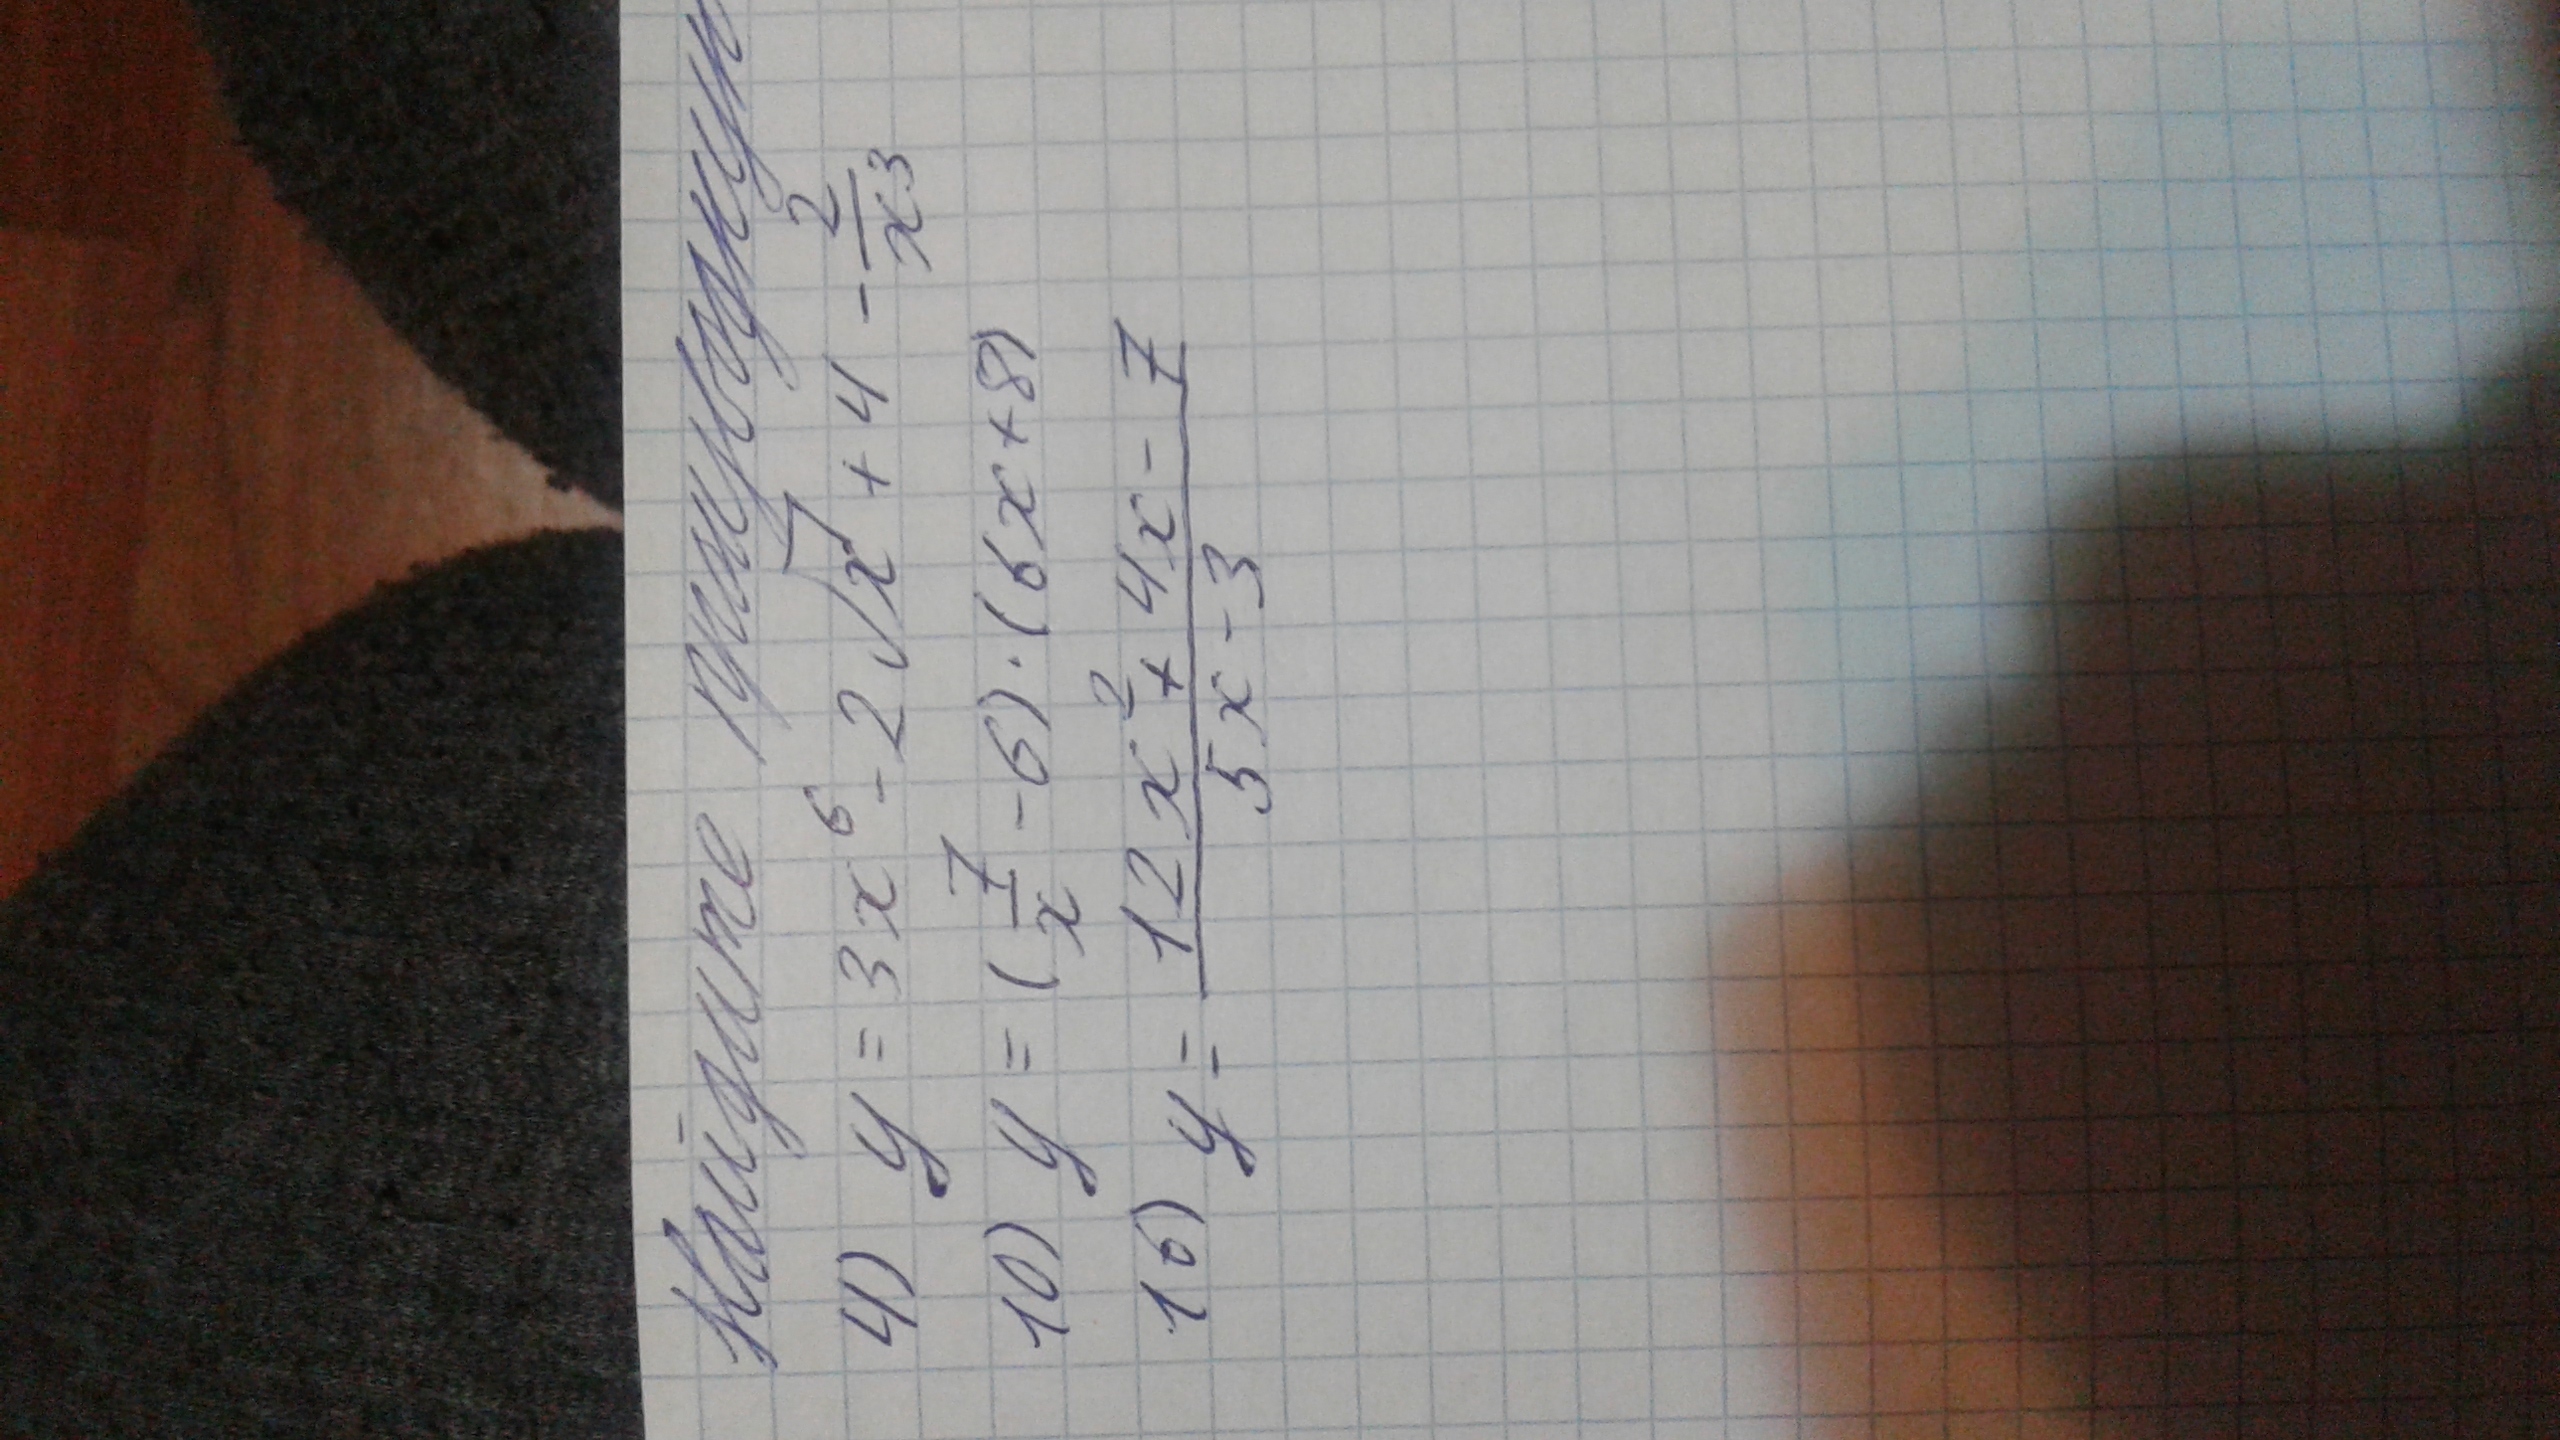 Найдите производную
4) y = 3x⁶ - 2√x + 4 - 2/x³
10) y = (7/x - 6) · (6x + 8)
16) y = (12x² + 4x - 7)/(5x - 3)